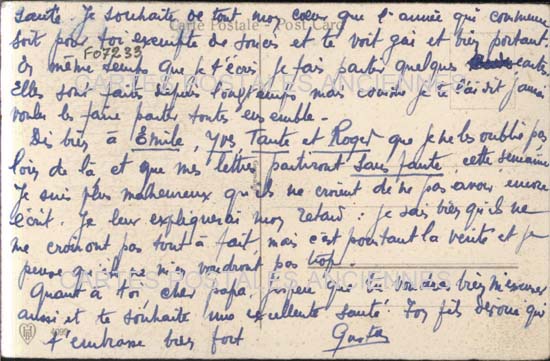 santé. Je souhaite de tout mon cœur que l'année qui commence
Carte Postale - Post Card
soit pour toi exempte de soucis et te voit gai et bien portant.
F07233
En même temps que je t'écris je fais partir quelques cartes
CARTES POSTALES ANCIENNES
Elles sont faites depuis longtemps mais comme je te l'ai dit j'aimais
les faire partir toutes ensemble.
Dis bien à Emile, Yves, Tante et Roger que je ne les oublie pas
loin de là et que mes lettres partiront sans faute, cette semaine
Je suis plus malheureux qu'ils ne croient de ne pas avoir encore
écrit. Je leur expliquerai mon retard : je sais bien qu'ils ne
me croiront pas tout à fait, mais c'est pourtant la vérité et je
pense qu'ils ne m'en voudront pas trop.
CARTES POSTALES ANCIENNES
Quant à toi cher papa, j'espère que tu voudras bien m'excuser
aussi et te souhaite une excellente santé. Ton fils dévoué qui
4099
t'embrasse bien fort